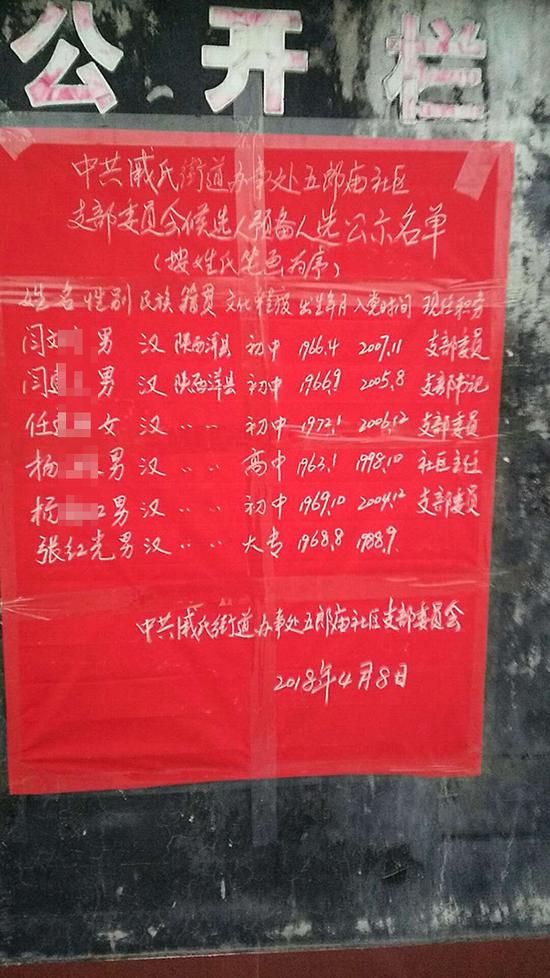 公开栏
中共戚氏街道办事处五郎庙社区
支部委员会候选人预备人选公示名单
(按姓氏笔画为序)
姓名 性别 民族 籍贯 文化程度 出生年月 入党时间 现任职务
闫 男 汉 陕西洋县 初中 1966.4 2007.11 支部委员
闫 男 汉 陕西洋县 初中 1966.9 2005.8 支部书记
任 女 汉 〃 〃 初中 1972.1 2006.12 支部委员
杨 男 汉 〃 〃 高中 1963.1 1998.10 社区主任
杨 男 汉 〃 〃 初中 1969.10 2004.12 支部委员
张红光 男 汉 〃 〃 大专 1968.8 1988.9
中共戚氏街道办事处五郎庙社区支部委员会
2018年4月8日